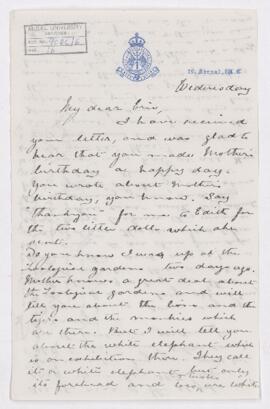 McGILL UNIVERSITY
ARCHIVES
ACC. NO.
REF.
Wednesday
My dear Eric,
I have received
your letter, and was glad to
hear that you made Mother's
birthday a happy day.
You wrote about Mother's
birthday, you know. Say
"Thank you" for me to Edith for
the two letter dolls which she
sent.
Do you know I was up at the
Zoological gardens two days ago.
Mother knows a great deal about
the Zoological gardens and will
tell you about the lions and the
tigers and the monkies which
are there. But I will tell you
about the white elephant which
is on exhibition there. They call
it a white elephant but only
its forehead and are white